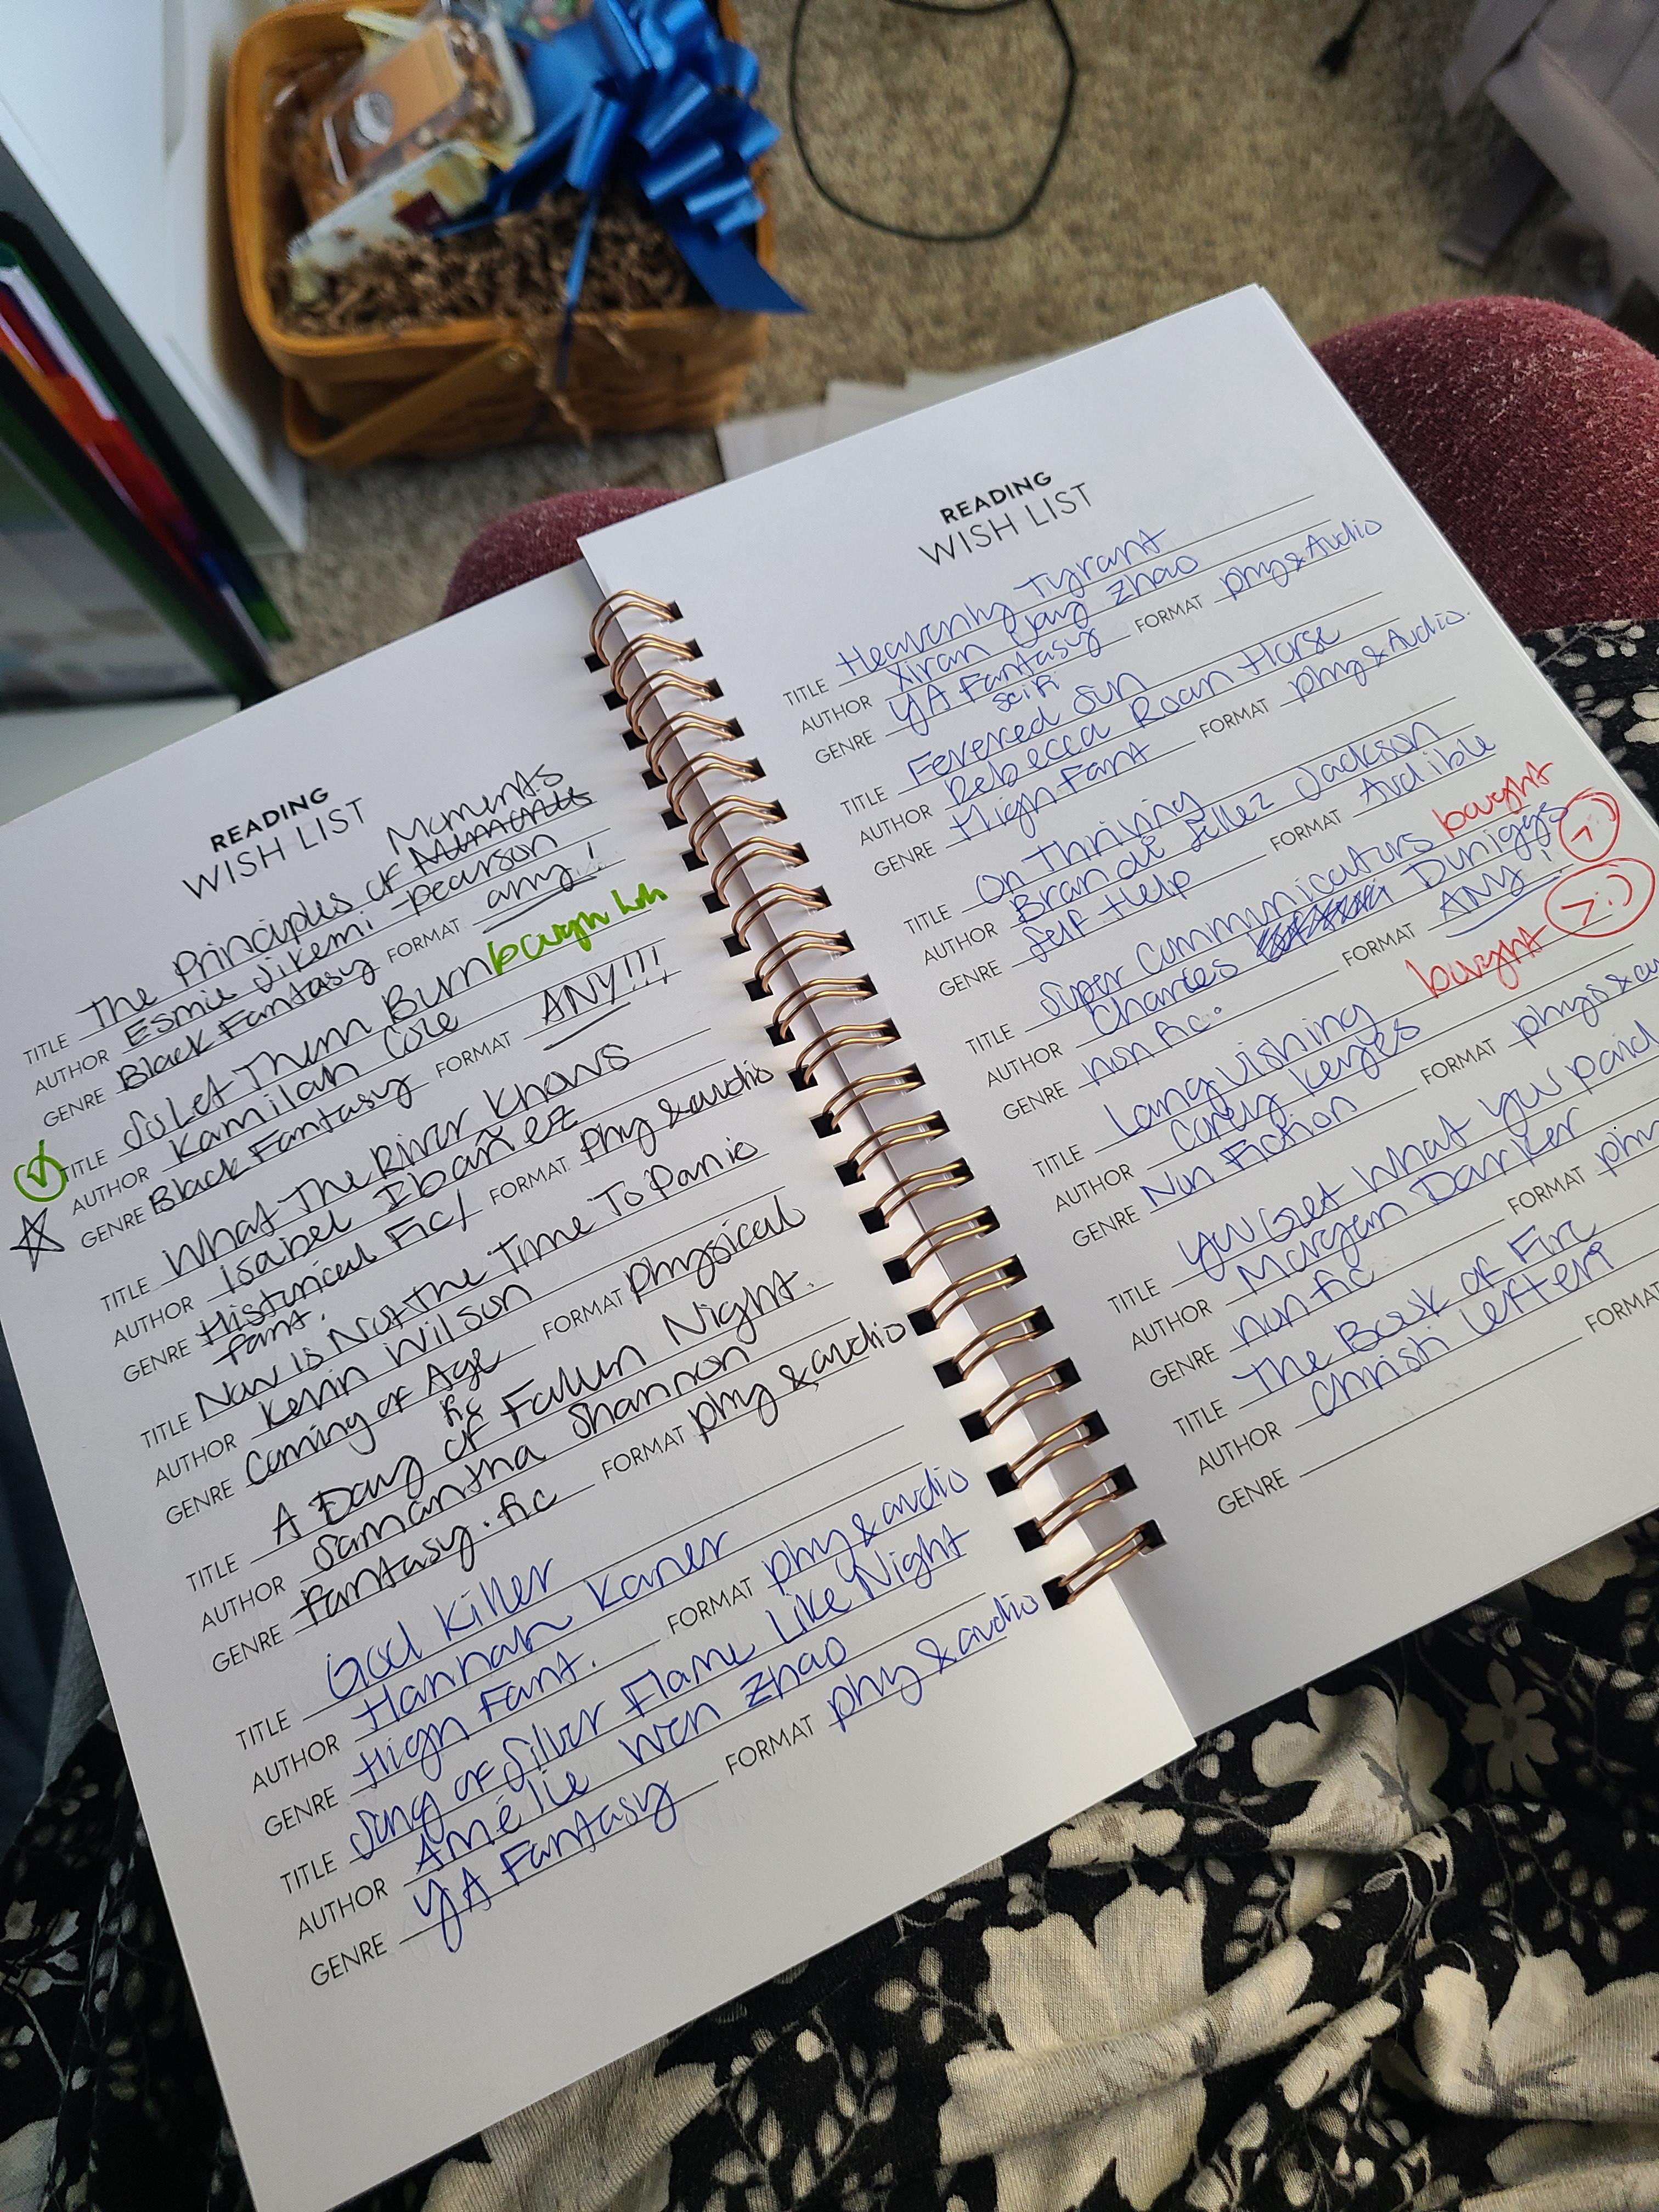 READING
WISH LIST
TITLE The Principles of Moments
AUTHOR Esmie Jikemi-pearson
GENRE Black Fantasy FORMAT any!
TITLE So Let Them Burn
AUTHOR Kamilah Cole
GENRE Black Fantasy FORMAT ANY!!!
TITLE What The River Knows
AUTHOR Isabel Ibañez
GENRE Historical Fic/ FORMAT Phy & audio
fant.
TITLE Now is Not The Time To Panic
AUTHOR Kevin Wilson
GENRE Coming of Age FORMAT physical
fic
TITLE A Day of Fallen Night.
AUTHOR Samantha Shannon
GENRE fantasy. fic FORMAT phy & audio
TITLE God Killer
AUTHOR Hannah Kaner
GENRE High Fant. FORMAT phy & audio
TITLE Song of Silver Flame Like Night
AUTHOR Amélie Wen Zhao
GENRE YA Fantasy FORMAT phy & audio
READING
WISH LIST
TITLE Heavenly Tyrant
AUTHOR Xiran Jay Zhao
GENRE YA Fantasy FORMAT phy & Audio
sci fi
TITLE Fevered Sun
AUTHOR Rebecca Roan Horse
GENRE High Fant FORMAT phy & Audio.
TITLE On Thriving
AUTHOR Brandi Sellez Jackson
GENRE Self Help FORMAT Audible
TITLE Super Communicators bought
AUTHOR Charles Duhiggs
GENRE non fic. FORMAT ANY!
TITLE Languishing bought
AUTHOR Corey Keyes
GENRE Non Fiction FORMAT
TITLE You Get What you paid
AUTHOR Morgan Darker
GENRE non fic FORMAT
TITLE The Book of Fire
AUTHOR Christi lefteri
GENRE FORMAT